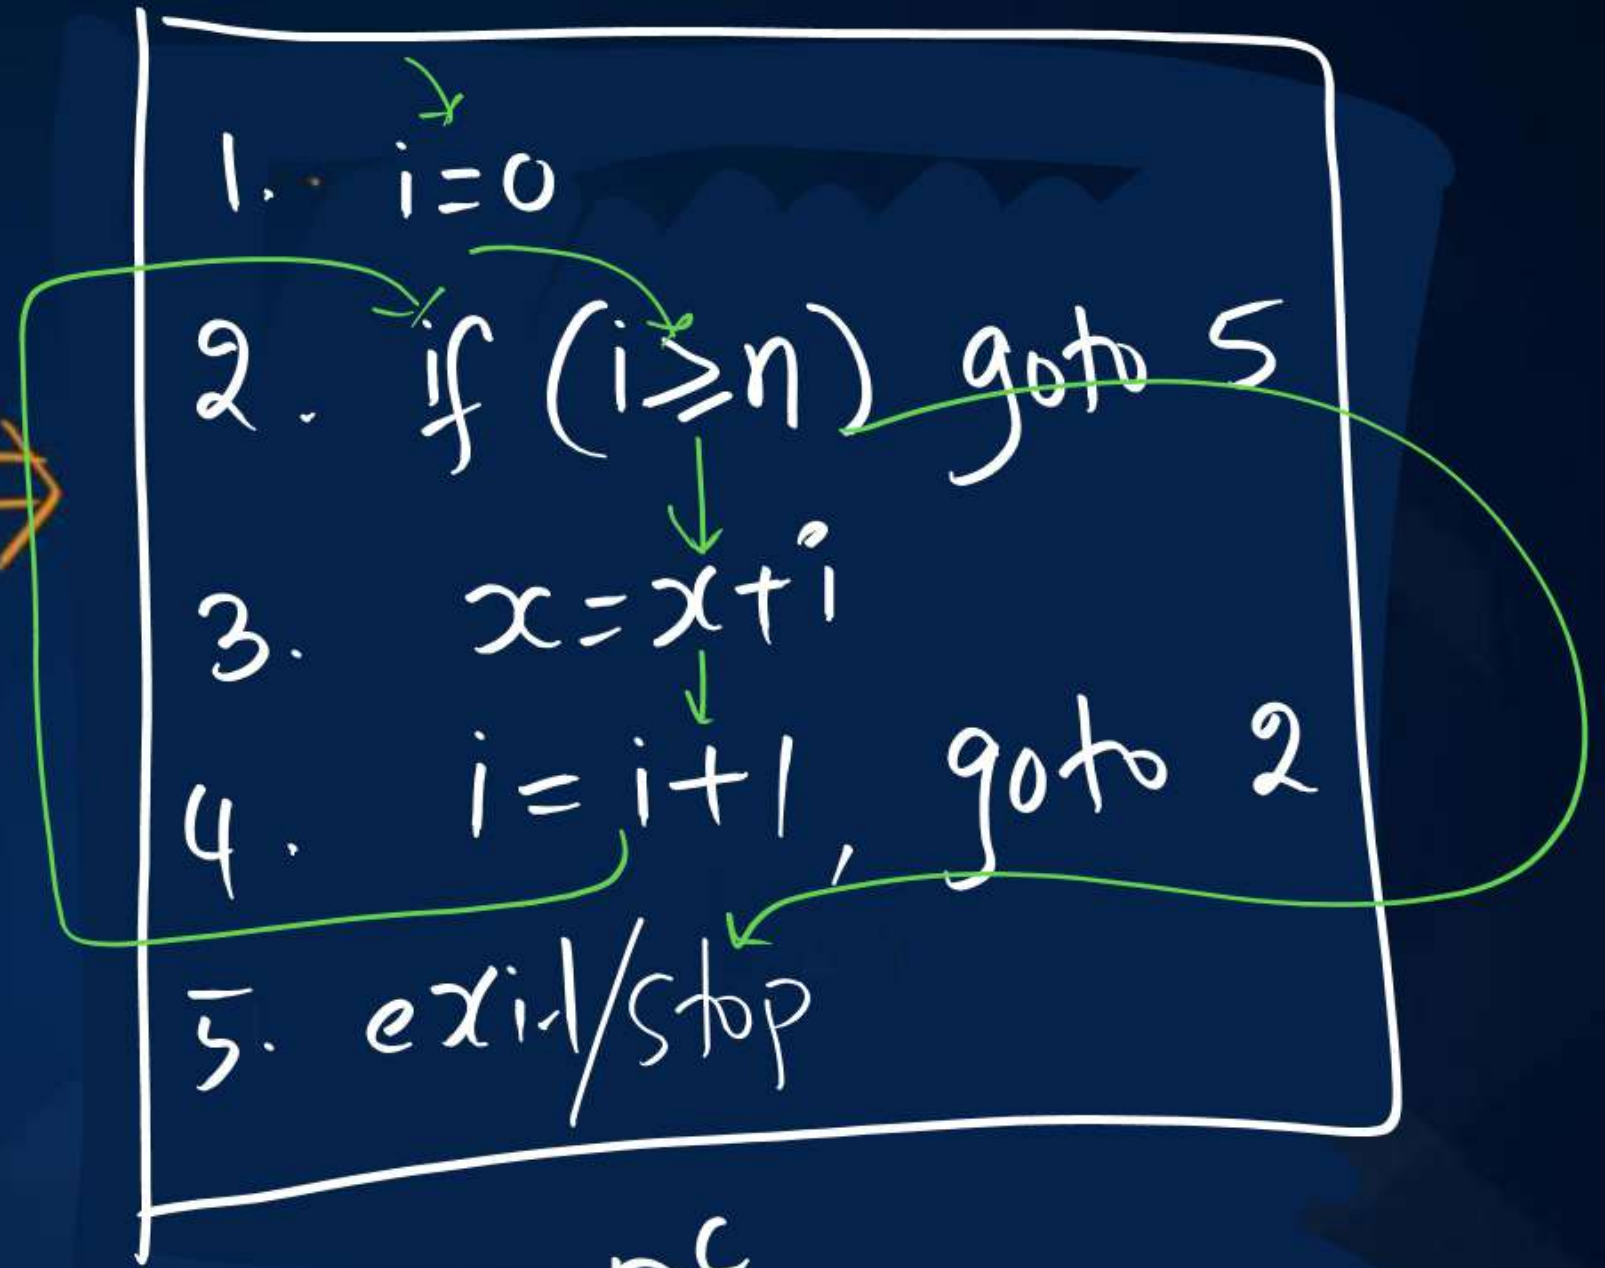 1. i=0
2. if (i≥n) goto 5
3. x=x+i
4. i=i+1, goto 2
5. exit/stop